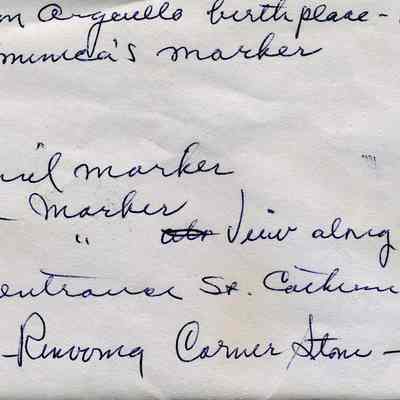 on Arguello birthplace -
minica's marker
" marker
- Marker
" View along
entrance St. Catherine
- Removing Corner Stone -